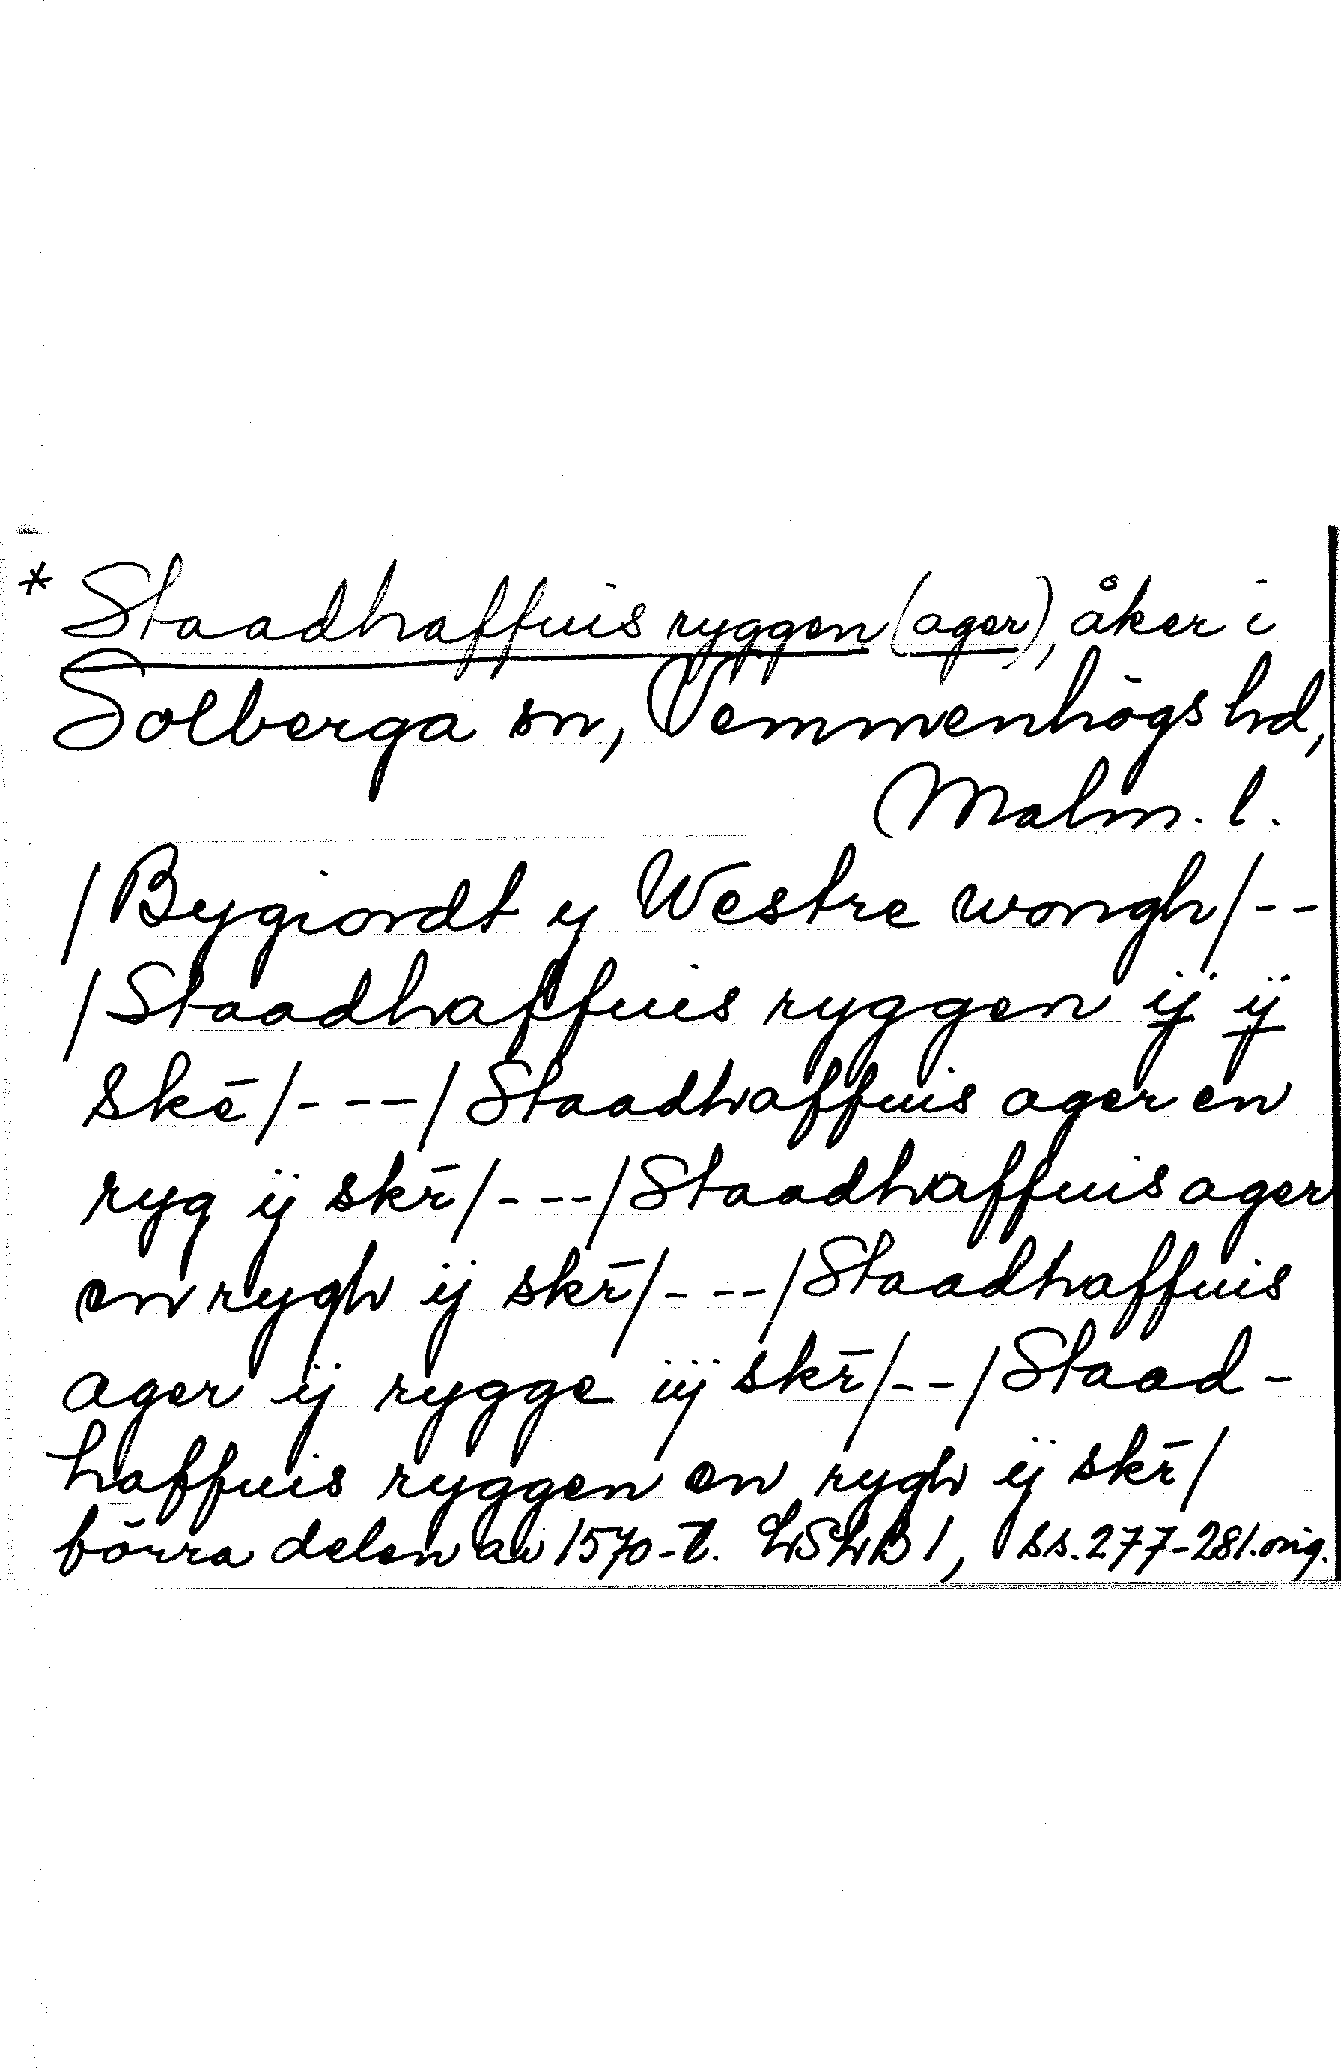 * Staadhaffuis ryggen (ager), åker i
Solberga sn, Vemmenhögs hd,
Malm. l.
/Bygiordt y Westre wongh/--
/Staadhaffuis ryggen ij ij
skē/---/Staadhaffuis ager en
ryg ij skr̄/---/Staadhaffuis ager
en rygh ij skr̄/---/Staadhaffuis
ager ij rygge iij skr̄/--/Staad-
haffuis ryggen en rygh ij skr̄/
förra delen av 1570-t. LSLB 1, ss. 277-281. orig.